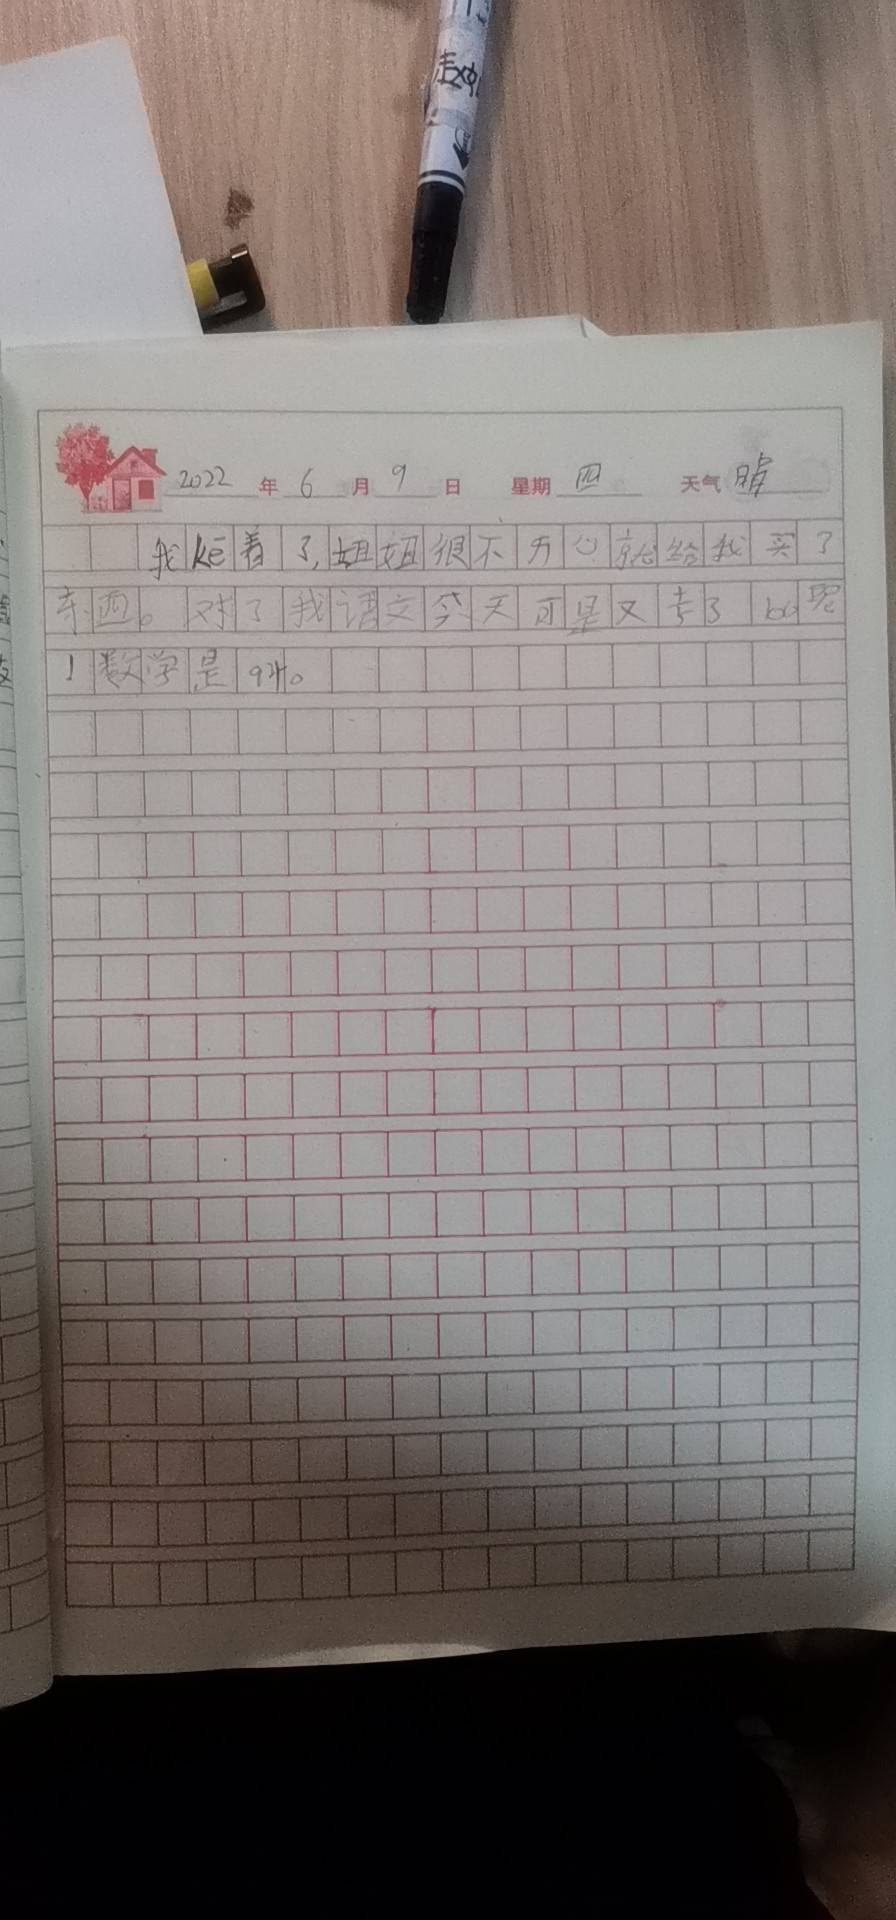 2022 年 6 月 9 日 星期 四 天气 晴
我kē着了,姐姐很不方心就给我买了
东西。对了我语文今天可是又考了100呢
!数学是94。